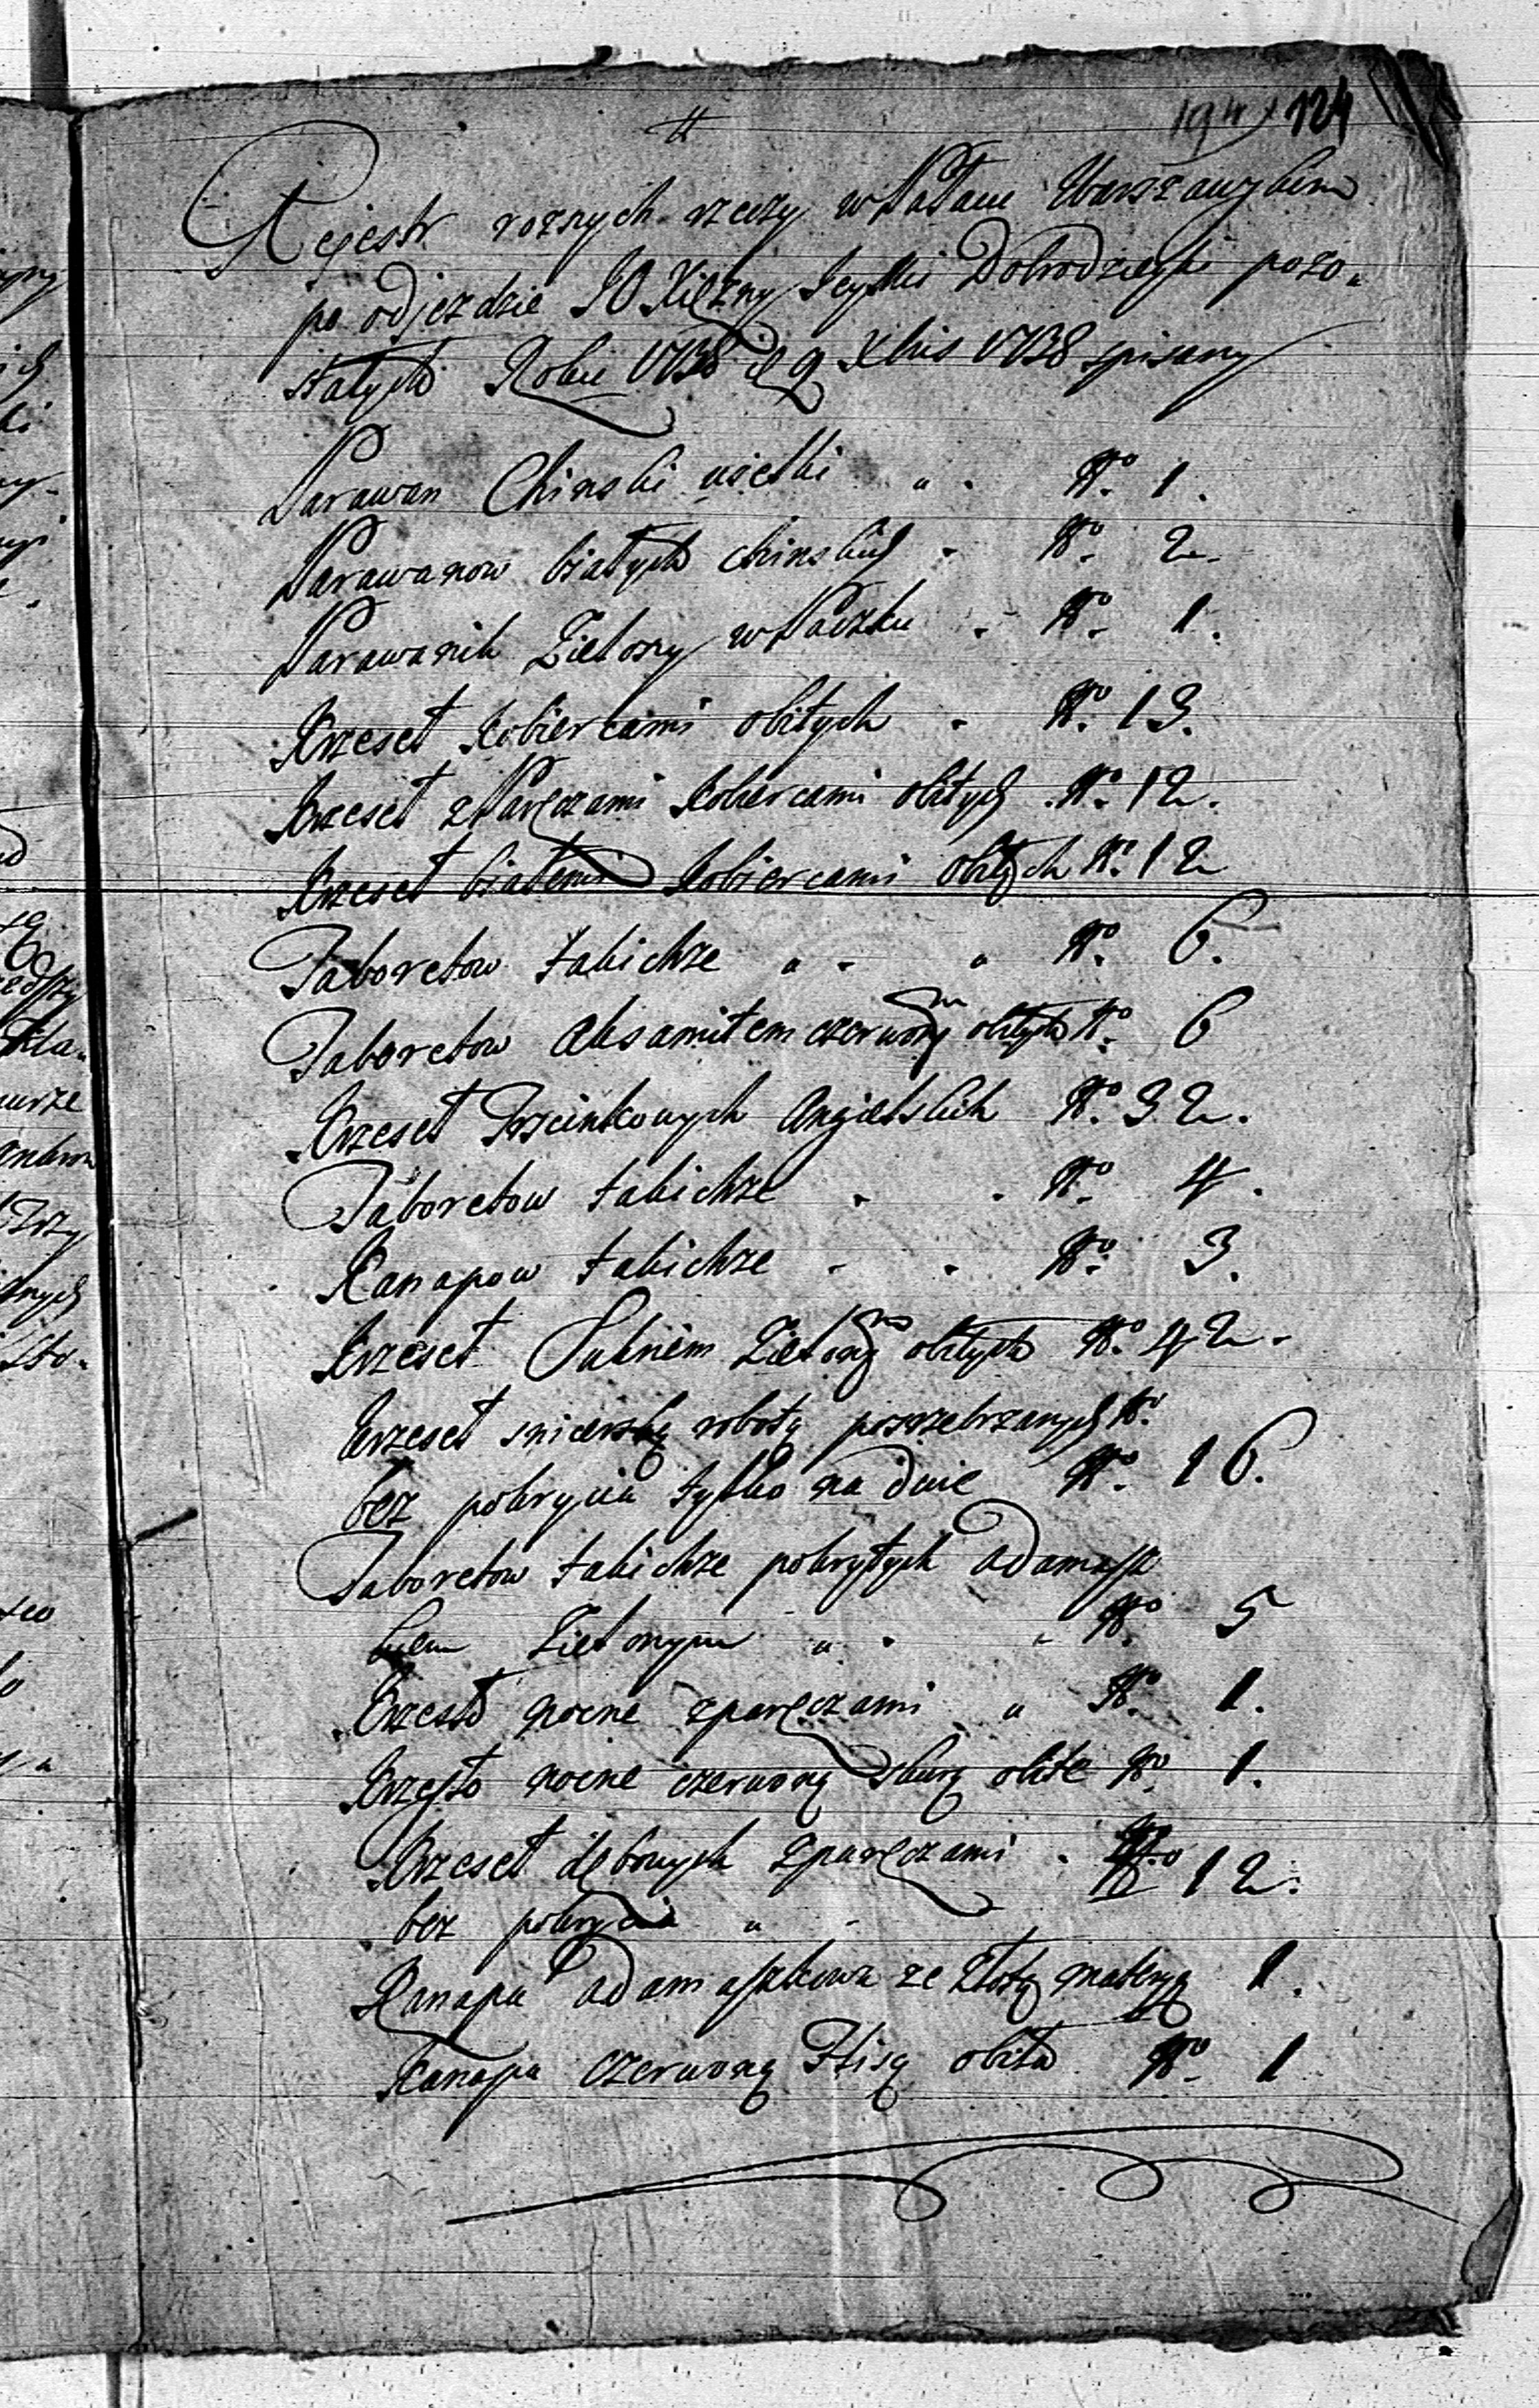 124
Rejestr roznych rzeczy w Pałacu Warszawskim
po odjezdzie JO Xiężny Jeymći Dobrodzieyki pozo„
stałych Roku 1738 d 9 Xbris 1738 spisany
Parawan Chinski wielki „ . N° 1.
Parawanow białych chinskich . N° 2.
Parawanik Zielony w Paczku . N° 1.
Krzeseł Kobiercami obitych . N° 13.
Krzeseł z Paręczami Kobiercami obitych . N° 12.
Krzeseł białemi Kobiercami obitych N° 12
Taboretow takichze „ . „ N° 6.
Taboretow Aksamitem czerwonym obitych N° 6
Krzeseł Trzcinkowych Angielskich N° 32.
Taboretow takichze . . N° 4.
Kanapow takichze . . N° 3.
Krzeseł Suknem Zielonym obitych N° 42.
Krzeseł snicerską robotą posrzebrzanych N°
bez pokrycia tylko na dnie N° 16.
Taboretow takichze pokrytych adamasz
kiem Zielonym „ . „ N° 5
Krzesło nocne z paręczami „ N° 1.
Krzesło nocne czerwoną skurą obite N° 1.
Krzeseł dębowych z paręczami . N° 12.
bez pokrycia „ .
Kanapa adamaszkowa ze złotą materyą 1.
Kanapa czerwoną obita N° 1